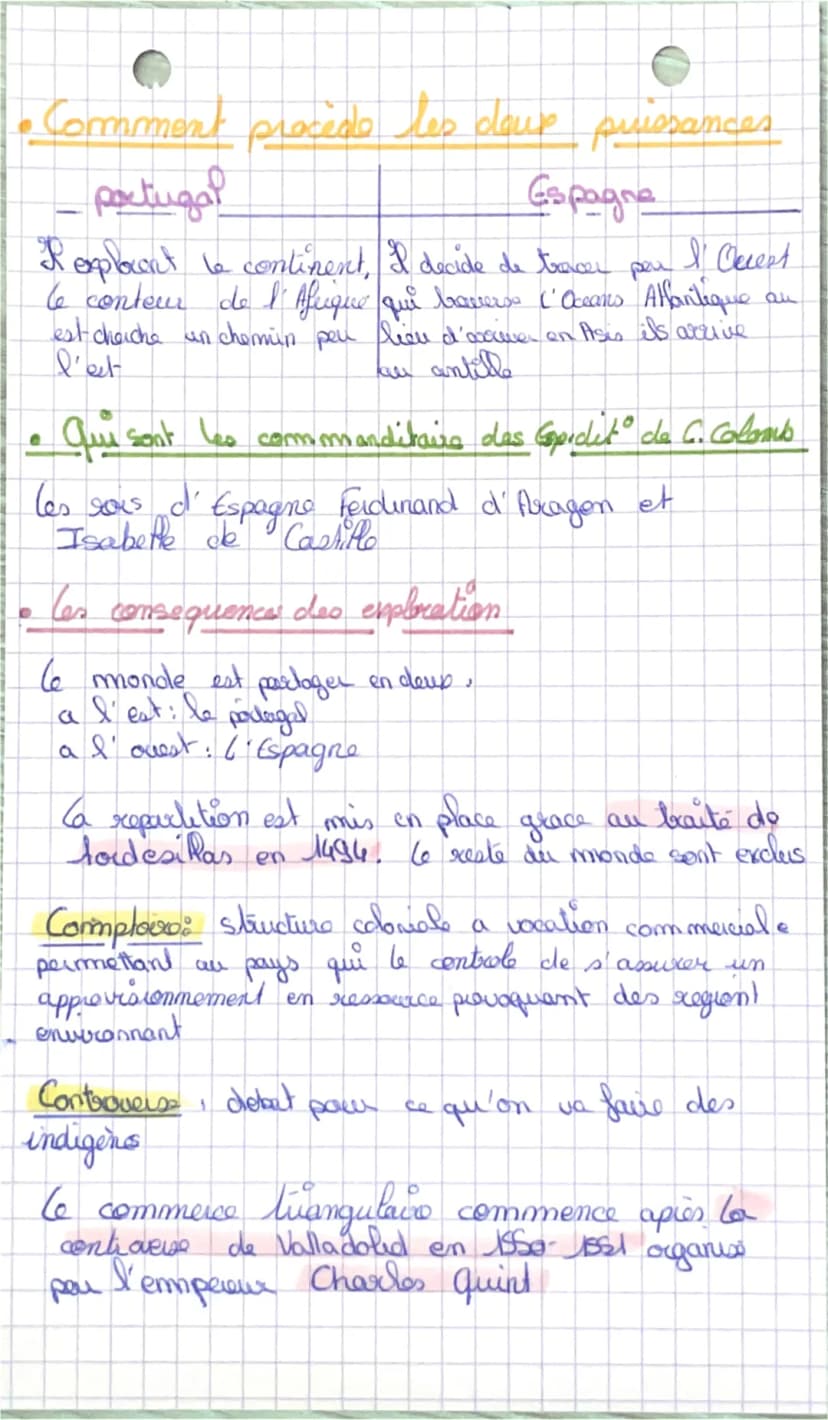 • Comment procède les deux puissances
portugal
Espagne
Il explorant le continent,
le conteur de l'Afrique
est cherche un chemin par
l'est
Il decide de tracer par l'Ouest
qui traverse l'Oceans Atlantique au
lieu d'arriver en Asis ils arrive
au antille
• Qui sont les commanditaire des Expedit° de C. Colomb
les rois d'Espagne Ferdinand d'Aragon et
Isabelle de Castille
• les consequences des exploration
le monde est partager en deux,
a l'est : le portugal
a l'ouest : l'Espagne
la repartition est mis en place grace au traité de
tordesillas en 1494. le reste du monde sont exclus
Comptoire : structure coloniale a vocation commerciale
permettant au pays qui le controle de s'assurer un
approvisionnement en ressource provoquant des regiont
environnant
Controverse, debat pour ce qu'on va faire des
indigène
le commerce triangulaire commence après la
controverse de Valladolid en 1550-1551 organisé
par l'empereur Charles Quint